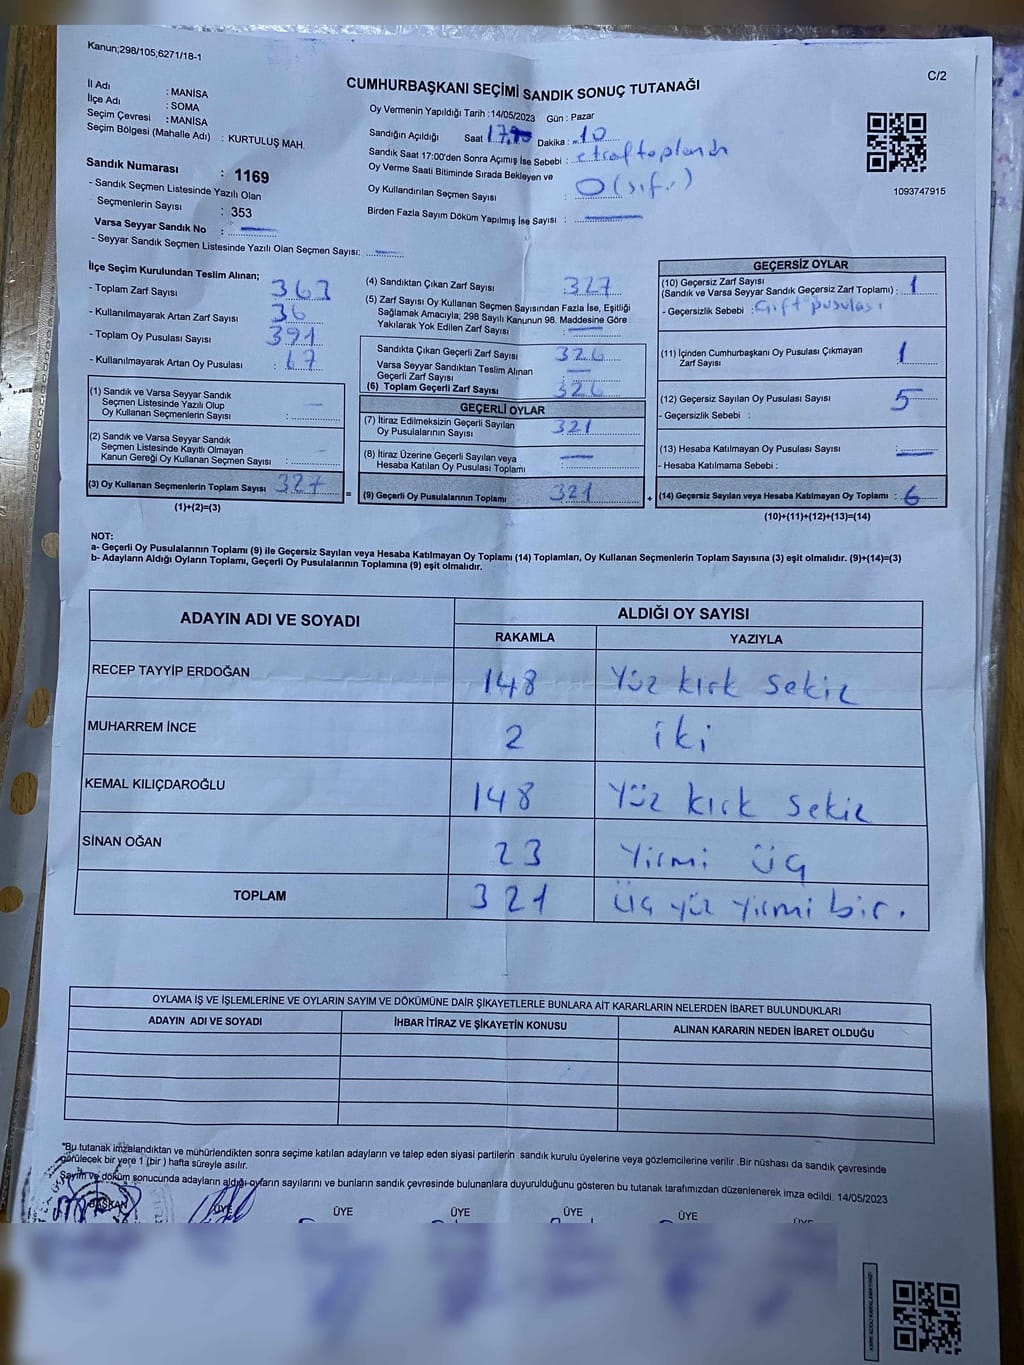 Kanun;298/105,6271/18-1
C/2
CUMHURBAŞKANI SEÇİMİ SANDIK SONUÇ TUTANAĞI
İl Adı : MANİSA
İlçe Adı : SOMA
Seçim Çevresi : MANİSA
Seçim Bölgesi (Mahalle Adı) : KURTULUŞ MAH.
Sandık Numarası : 1169
- Sandık Seçmen Listesinde Yazılı Olan
Seçmenlerin Sayısı : 353
Varsa Seyyar Sandık No :
- Seyyar Sandık Seçmen Listesinde Yazılı Olan Seçmen Sayısı:
Oy Vermenin Yapıldığı Tarih :14/05/2023 Gün : Pazar
Sandığın Açıldığı Saat 17 Dakika : 10
Sandık Saat 17:00'den Sonra Açımış İse Sebebi : etraf toplandı
Oy Verme Saati Bitiminde Sırada Bekleyen ve
Oy Kullandırılan Seçmen Sayısı : 0 (sıfır)
Birden Fazla Sayım Döküm Yapılmış İse Sayısı :
1093747915
İlçe Seçim Kurulundan Teslim Alınan;
- Toplam Zarf Sayısı : 363
- Kullanılmayarak Artan Zarf Sayısı : 36
- Toplam Oy Pusulası Sayısı : 391
- Kullanılmayarak Artan Oy Pusulası : 67
(1) Sandık ve Varsa Seyyar Sandık
Seçmen Listesinde Yazılı Olup
Oy Kullanan Seçmenlerin Sayısı :
(2) Sandık ve Varsa Seyyar Sandık
Seçmen Listesinde Kayıtlı Olmayan
Kanun Gereği Oy Kullanan Seçmen Sayısı :
(3) Oy Kullanan Seçmenlerin Toplam Sayısı : 327
(1)+(2)=(3)
(4) Sandıktan Çıkan Zarf Sayısı : 327
(5) Zarf Sayısı Oy Kullanan Seçmen Sayısından Fazla İse, Eşitliği
Sağlamak Amacıyla; 298 Sayılı Kanunun 98. Maddesine Göre
Yakılarak Yok Edilen Zarf Sayısı :
Sandıkta Çıkan Geçerli Zarf Sayısı : 326
Varsa Seyyar Sandıktan Teslim Alınan
Geçerli Zarf Sayısı :
(6) Toplam Geçerli Zarf Sayısı : 326
GEÇERLİ OYLAR
(7) İtiraz Edilmeksizin Geçerli Sayılan
Oy Pusulalarının Sayısı : 321
(8) İtiraz Üzerine Geçerli Sayılan veya
Hesaba Katılan Oy Pusulası Toplamı :
= (9) Geçerli Oy Pusulalarının Toplamı : 321
GEÇERSİZ OYLAR
(10) Geçersiz Zarf Sayısı
(Sandık ve Varsa Seyyar Sandık Geçersiz Zarf Toplamı) : 1
- Geçersizlik Sebebi : Çift pusulası
(11) İçinden Cumhurbaşkanı Oy Pusulası Çıkmayan
Zarf Sayısı : 1
(12) Geçersiz Sayılan Oy Pusulası Sayısı : 5
- Geçersizlik Sebebi :
(13) Hesaba Katılmayan Oy Pusulası Sayısı :
- Hesaba Katılmama Sebebi :
+ (14) Geçersiz Sayılan veya Hesaba Katılmayan Oy Toplamı : 6
(10)+(11)+(12)+(13)=(14)
NOT:
a- Geçerli Oy Pusulalarının Toplamı (9) ile Geçersiz Sayılan veya Hesaba Katılmayan Oy Toplamı (14) Toplamları, Oy Kullanan Seçmenlerin Toplam Sayısına (3) eşit olmalıdır. (9)+(14)=(3)
b- Adayların Aldığı Oyların Toplamı, Geçerli Oy Pusulalarının Toplamına (9) eşit olmalıdır.
ADAYIN ADI VE SOYADI
ALDIĞI OY SAYISI
RAKAMLA YAZIYLA
RECEP TAYYİP ERDOĞAN 148 Yüz kırk sekiz
MUHARREM İNCE 2 iki
KEMAL KILIÇDAROĞLU 148 Yüz kırk sekiz
SİNAN OĞAN 23 Yirmi üç
TOPLAM 321 Üç yüz yirmi bir.
OYLAMA İŞ VE İŞLEMLERİNE VE OYLARIN SAYIM VE DÖKÜMÜNE DAİR ŞİKAYETLERLE BUNLARA AİT KARARLARIN NELERDEN İBARET BULUNDUKLARI
ADAYIN ADI VE SOYADI İHBAR İTİRAZ VE ŞİKAYETİN KONUSU ALINAN KARARIN NEDEN İBARET OLDUĞU
*Bu tutanak imzalandıktan ve mühürlendikten sonra seçime katılan adayların ve talep eden siyasi partilerin sandık kurulu üyelerine veya gözlemcilerine verilir .Bir nüshası da sandık çevresinde
görülecek bir yere 1 (bir ) hafta süreyle asılır.
Sayım ve döküm sonucunda adayların aldığı oyların sayılarını ve bunların sandık çevresinde bulunanlara duyurulduğunu gösteren bu tutanak tarafımızdan düzenlenerek imza edildi. 14/05/2023
BAŞKAN ÜYE ÜYE ÜYE ÜYE ÜYE ÜYE